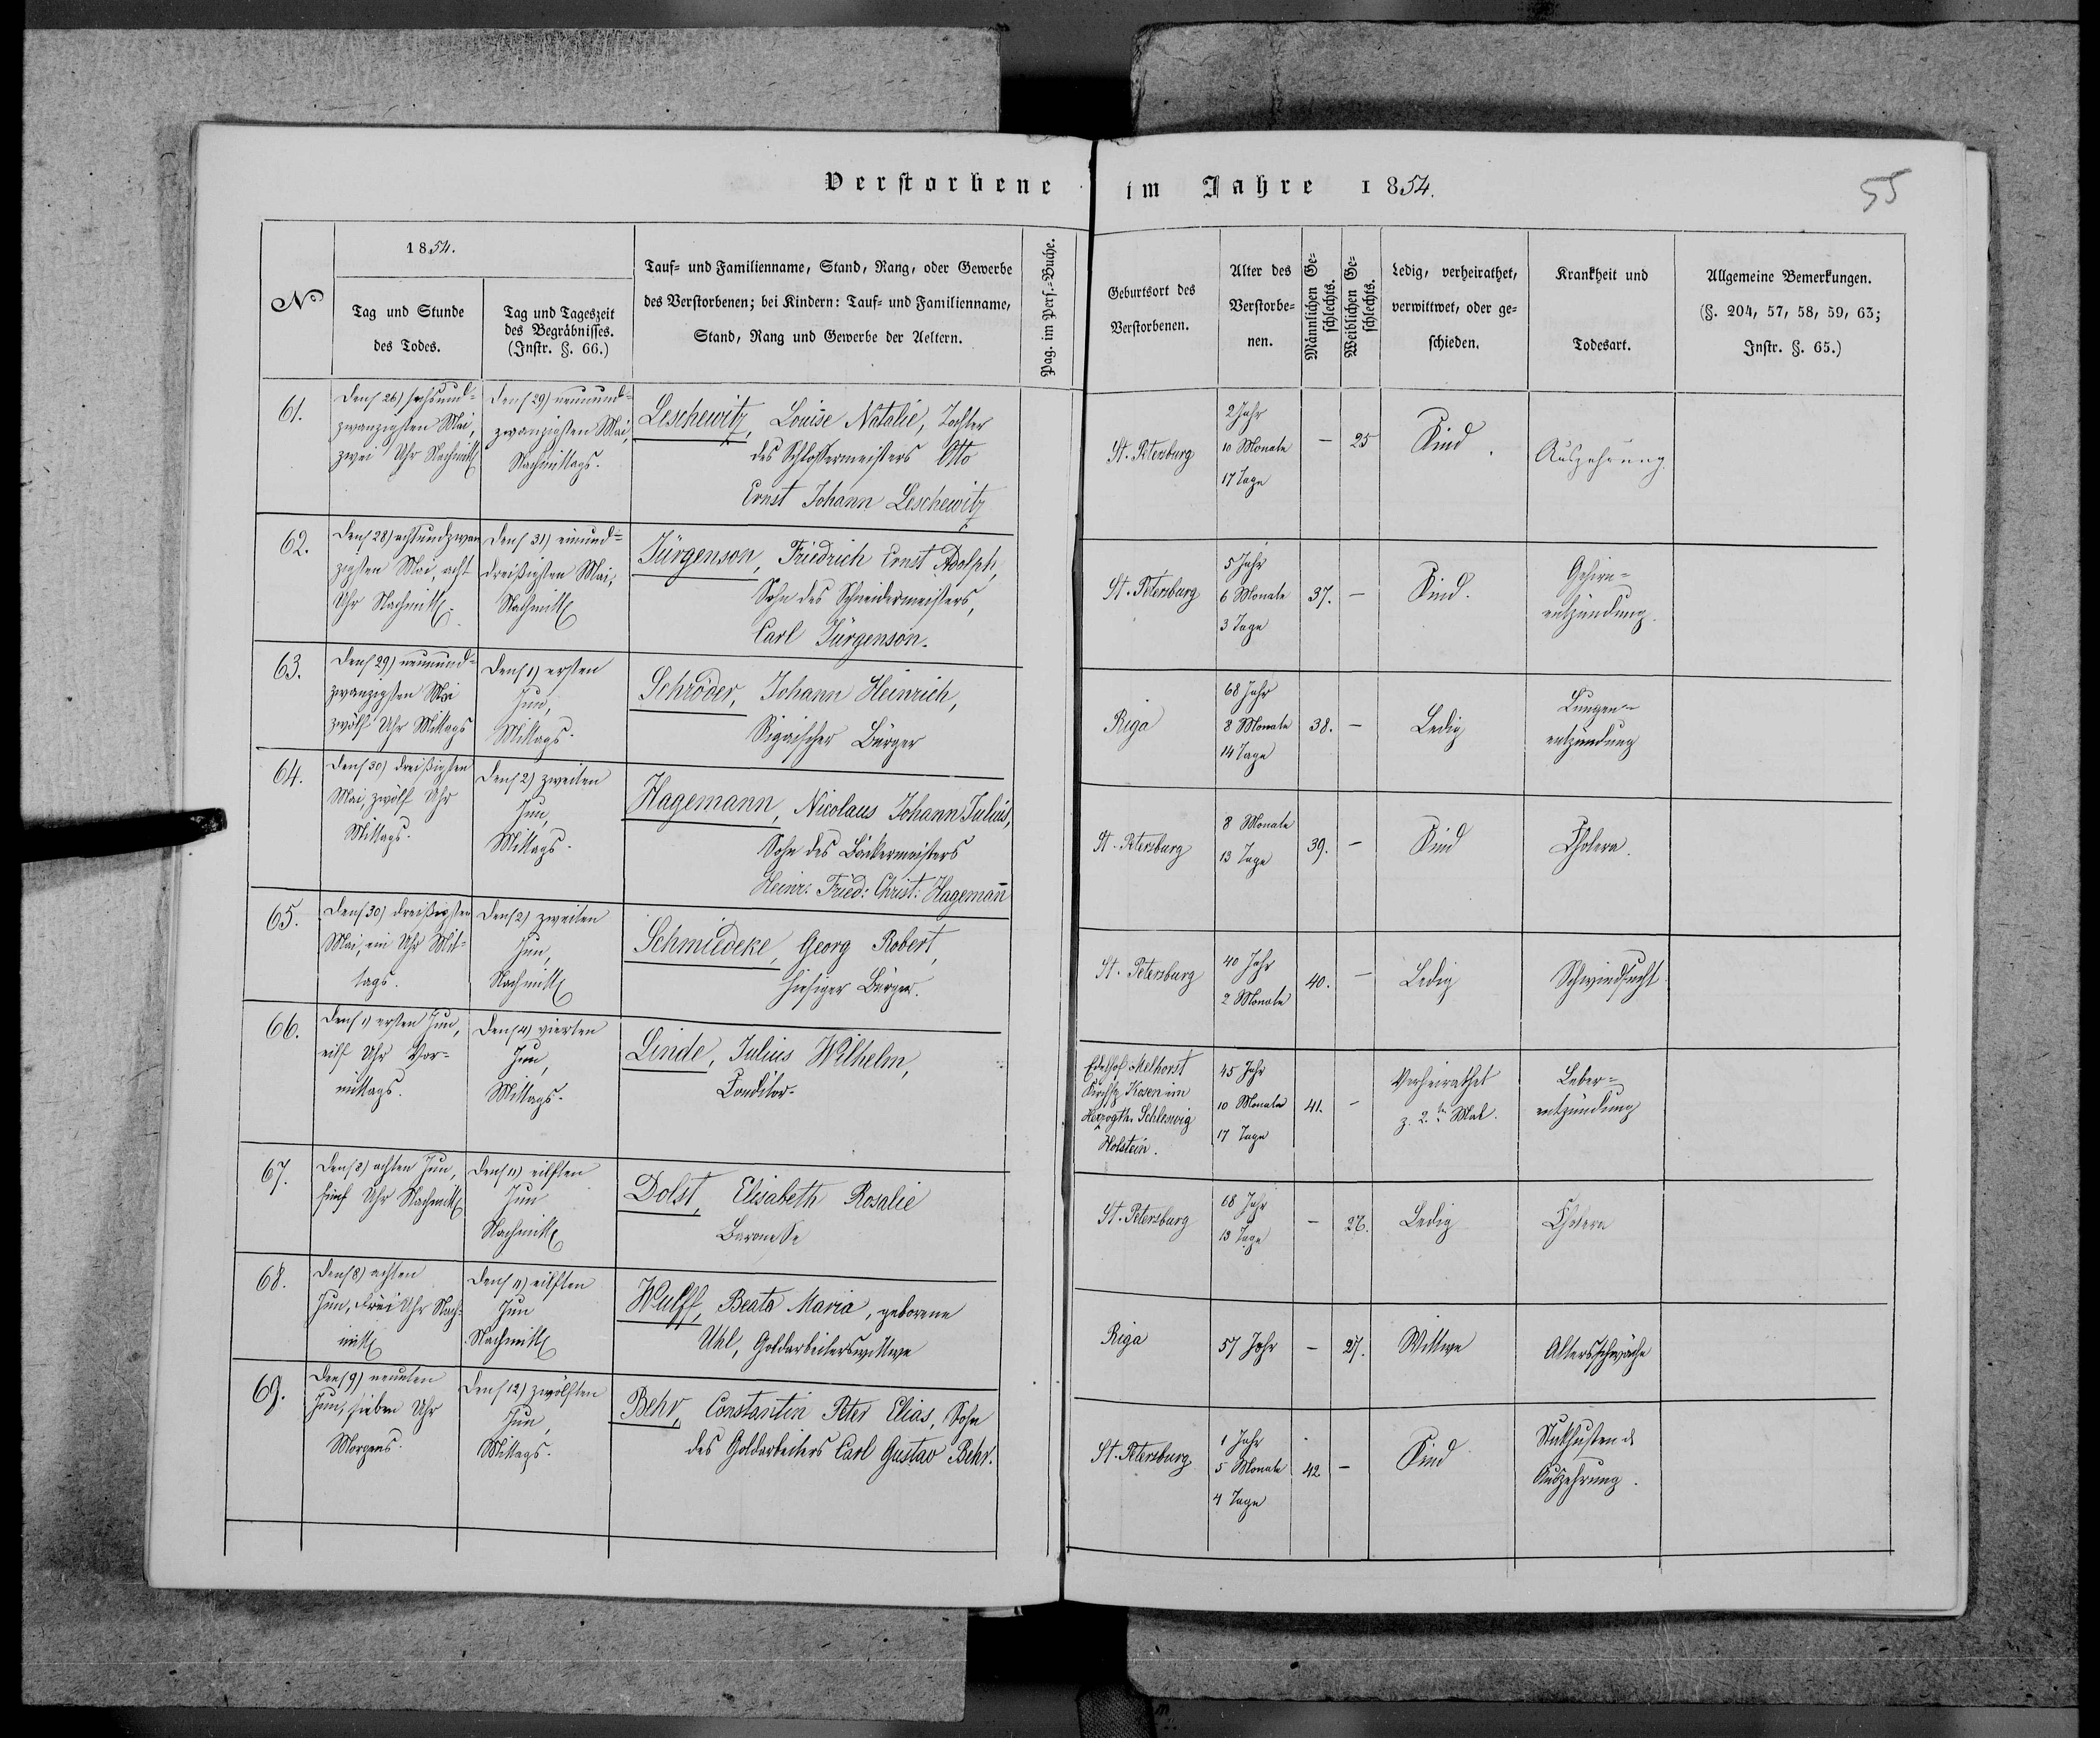 Verstorbene im Jahre 1854.
55
No
1854.
Tag und Stunde
des Todes.
Tag und Tageszeit
des Begräbnisses.
(Instr. §. 66.)
Tauf- und Familienname, Stand, Rang, oder Gewerbe
des Verstorbenen; bei Kindern: Tauf- und Familienname,
Stand, Rang und Gewerbe der Aeltern.
Pag. im Pers.-Buche.
Geburtsort des
Verstorbenen.
Alter des
Verstorbe-
nen.
Männlichen Ge-
schlechts.
Weiblichen Ge-
schlechts.
Ledig, verheirathet,
verwittwet, oder ge-
schieden.
Krankheit und
Todesart.
Allgemeine Bemerkungen.
(§. 204, 57, 58, 59, 63;
Instr. §. 65.)
61.
Den (26) sechsund-
zwanzigsten Mai,
zwei Uhr Nachmitt
Den (29) neunund-
zwanzigsten Mai,
Nachmittags.
Leschewitz, Louise Natalie, Tochter
des Schlossermeisters Otto
Ernst Johann Leschewitz
St. Petersburg
2 Jahr
10 Monate
17 Tage
-
25
Kind.
Auszehrung.
62.
Den (28) achtundzwan
zigsten Mai, acht
Uhr Nachmitt.
Den (31) einund-
dreißigsten Mai,
Nachmitt
Jürgenson, Friedrich Ernst Adolph,
Sohn des Schneidermeisters,
Carl Jürgenson.
St. Petersburg
5 Jahr
6 Monate
3 Tage
37.
-
Kind.
Gehirn-
entzündung.
63.
Den (29) neunund-
zwanzigsten Mai
zwölf Uhr Mittags
Den (1) ersten
Jun,
Mittags.
Schröder, Johann Heinrich,
Rigaischer Bürger
Riga
68 Jahr
8 Monate
14 Tage
38.
-
Ledig
Lungen-
entzündung
64.
Den (30) dreißigsten
Mai, zwölf Uhr
Mittags.
Den (2) zweiten
Jun,
Mittags.
Hagemann, Nicolaus Johann Julius,
Sohn des Bäckermeisters
Heinr. Fried: Christ: Hagemañ
St. Petersburg
8 Monate
13 Tage
39.
-
Kind
Cholera.
65.
Den (30) dreißigsten
Mai, ein Uhr Mit-
tags.
Den (2) zweiten
Jun,
Nachmitt
Schmiedeke, Georg Robert,
hiesiger Bürger.
St. Petersburg
40 Jahr
2 Monate
40.
-
Ledig
Schwindsucht
66.
Den (1) ersten Jun,
eilf Uhr Vor-
mittags.
Den (4) vierten
Jun,
Mittags.
Linde, Julius Wilhelm,
Conditor.
Edelhof Melhorst
Kirchsp. Kosen im
Herzogth. Schleswig
Holstein.
45 Jahr
10 Monate
17 Tage
41.
-
Verheirathet
z. 2.ten Mal.
Leber-
entzündung
67.
Den (8) achten Jun,
fünf Uhr Nachmitt
Den (11) eilften
Jun
Nachmitt
Dolst, Elisabeth Rosalie
Baronesse
St. Petersburg
68 Jahr
13 Tage
-
26.
Ledig
Cholera
68.
Den (8) achten
Jun, drei Uhr Nach-
mitt
Den (11) eilften
Jun
Nachmitt
Wulff, Beata Maria, geborene
Uhl, Goldarbeiterswittwe
Riga
57 Jahr
-
27.
Wittwe
Altersschwäche
69.
Den (9) neunten
Jun, sieben Uhr
Morgens.
Den (12) zwölften
Jun,
Mittags.
Behr, Constantin Peter Elias, Sohn
des Goldarbeiters Carl Gustav Behr.
St. Petersburg
1 Jahr
5 Monate
4 Tage
42
-
Kind
Stickhusten &
Auszehrung.